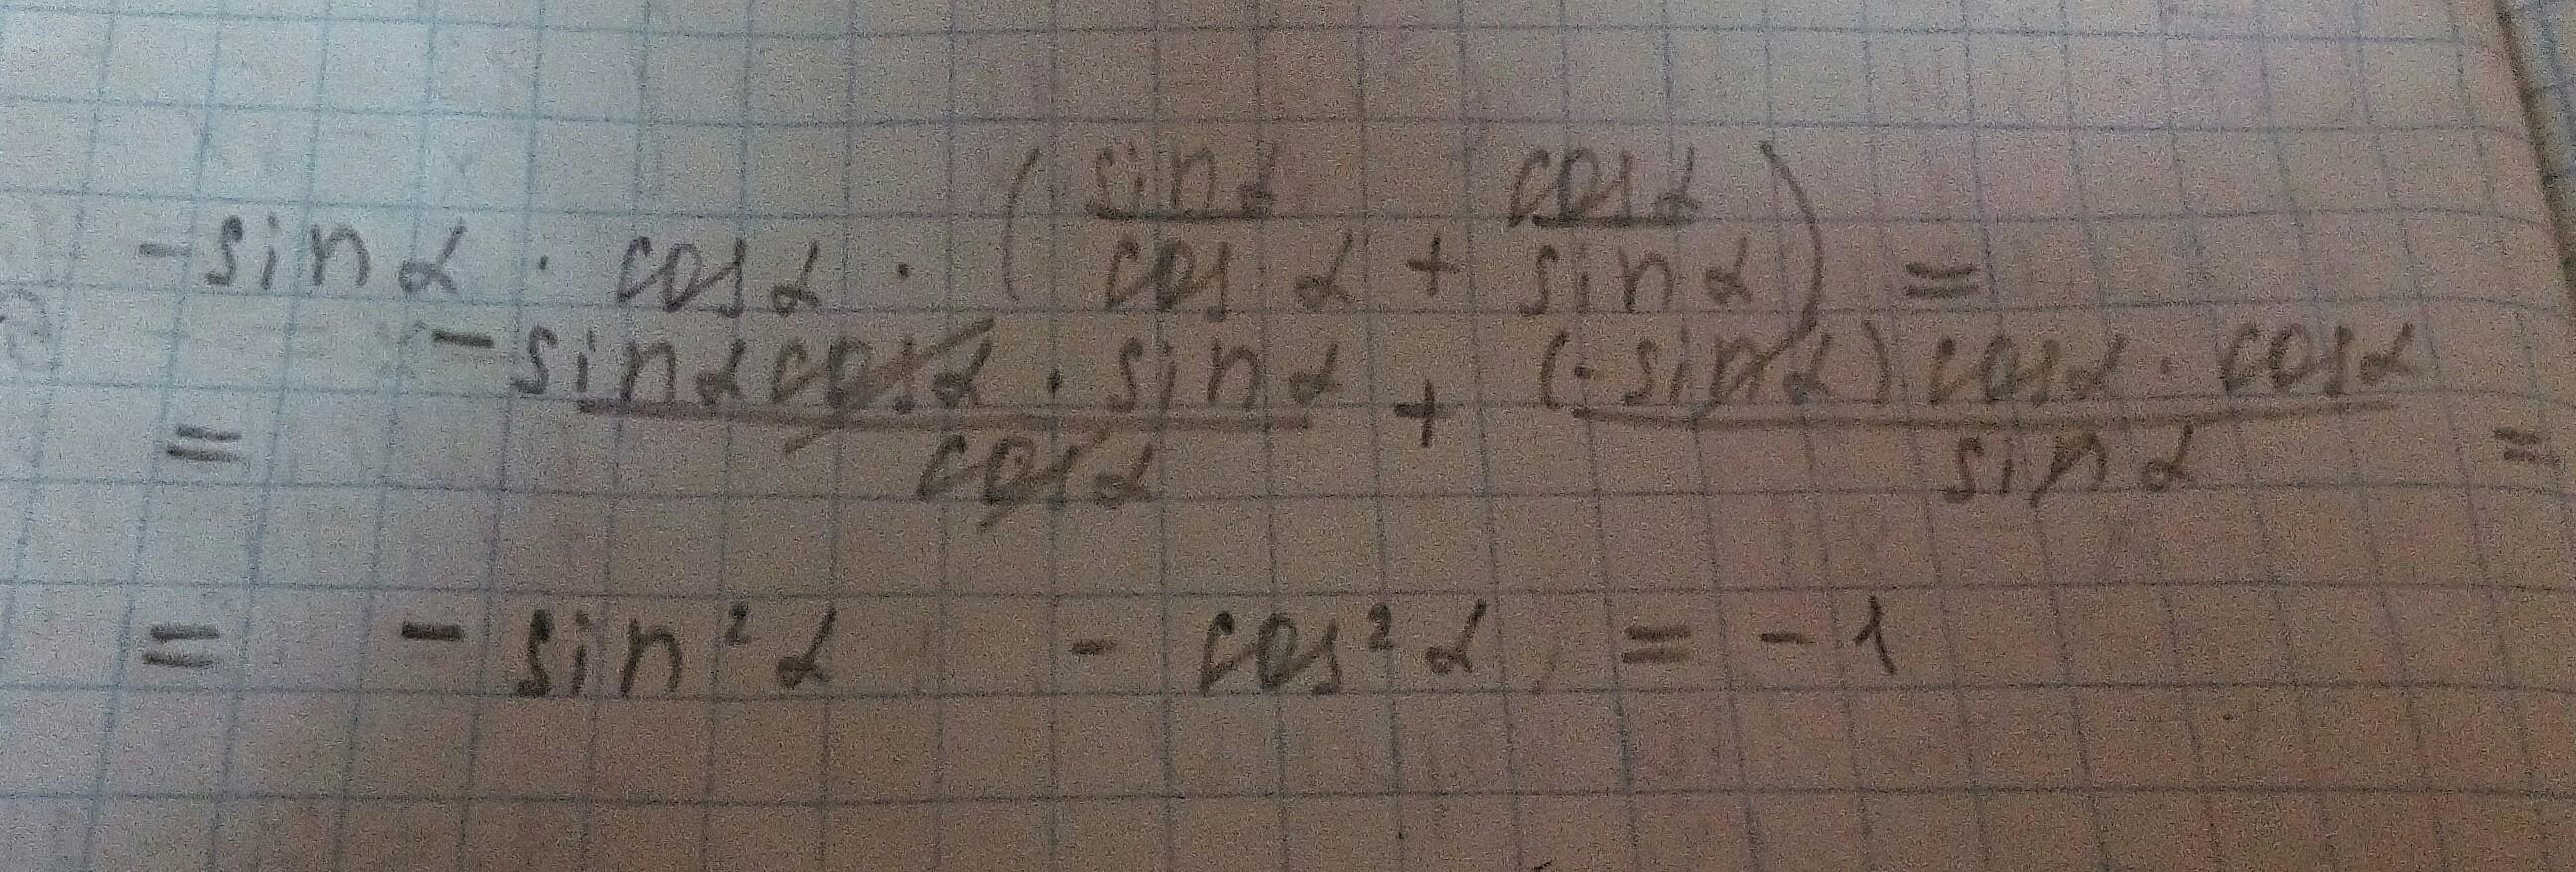 -sinα · cosα · (sinα/cosα + cosα/sinα) =
= -sinαcosα · sinα/cosα + (-sinα)cosα · cosα/sinα =
= -sin²α - cos²α = -1